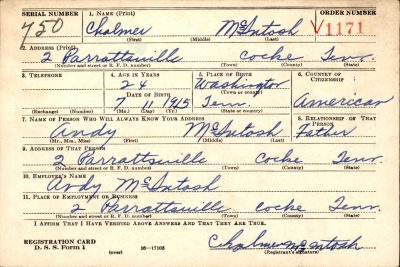 SERIAL NUMBER 1. NAME (Print) ORDER NUMBER
750 Chalmer McIntosh V1171
(First) (Middle) (Last)
2. ADDRESS (Print)
2 Parrattsville Cocke Tenn.
(Number and street or R. F. D. number) (Town) (County) (State)
3. TELEPHONE 4. AGE IN YEARS 5. PLACE OF BIRTH 6. COUNTRY OF CITIZENSHIP
24 Washington
(Town or county)
DATE OF BIRTH
7 11 1915 Tenn. American
(Exchange) (Number) (Mo.) (Day) (Yr.) (State or country)
7. NAME OF PERSON WHO WILL ALWAYS KNOW YOUR ADDRESS 8. RELATIONSHIP OF THAT PERSON
Andy McIntosh Father
(Mr., Mrs., Miss) (First) (Middle) (Last)
9. ADDRESS OF THAT PERSON
2 Parrattsville Cocke Tenn.
(Number and street or R. F. D. number) (Town) (County) (State)
10. EMPLOYER'S NAME
Andy McIntosh
11. PLACE OF EMPLOYMENT OR BUSINESS
2 Parrattsville Cocke Tenn.
(Number and street or R. F. D. number) (Town) (County) (State)
I AFFIRM THAT I HAVE VERIFIED ABOVE ANSWERS AND THAT THEY ARE TRUE.
REGISTRATION CARD
D. S. S. Form 1 (over) 16—17105 Chalmer McIntosh
(Registrant's signature)